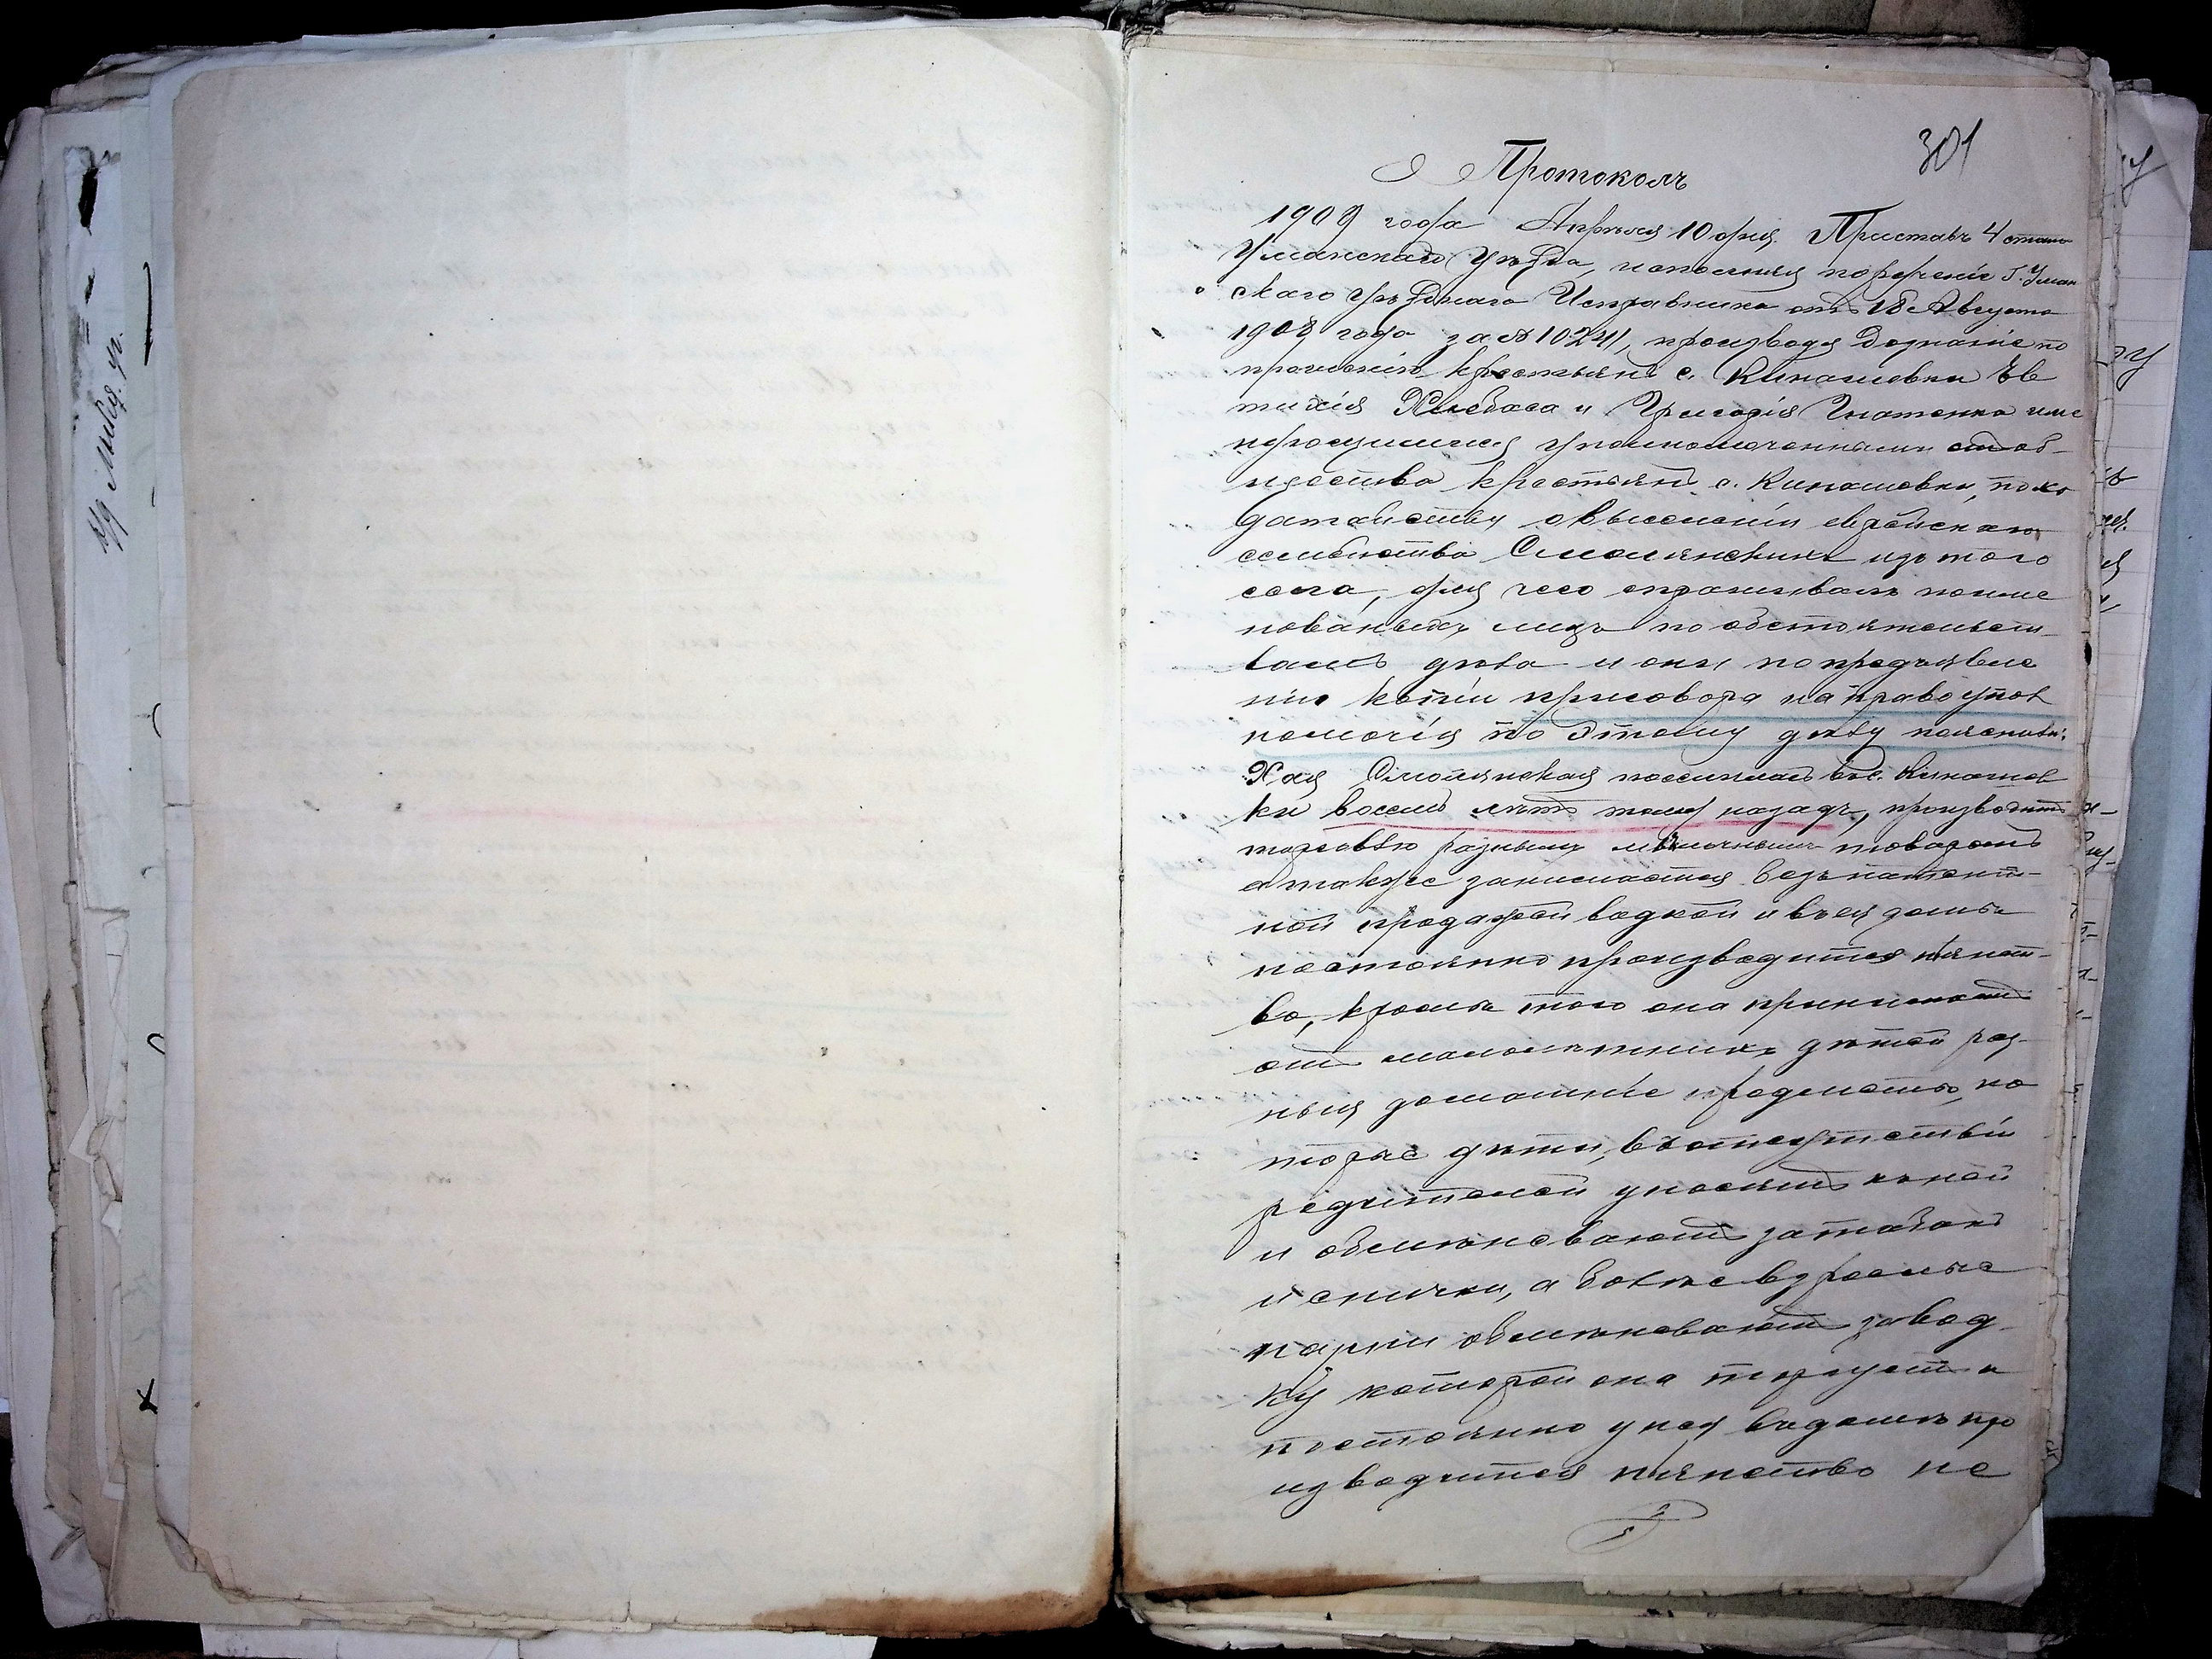 301
Протоколъ
1909 года Апрѣля 10 дня. Приставъ 4 стана
Уманскаго уѣзда, исполняя порученіе Г. Уман
скаго Уѣзднаго Исправника отъ 18 Августа
1908 года за № 10241, производя дознаніе по
прошенію крестьянъ с. Кинашевки Ев
тихія Хлѣбаса и Григорія Гнатенка име
нующимися уполномоченными отъ об-
щества крестьянъ с. Кинашевки, по хо
датайству о выселеніи еврейскаго
семейства Смолянскихъ изъ того
села, для чего опрашивалъ поиме
нованныхъ лицъ по обстоятельст-
вамъ дѣла и они по предъявле
ніи копіи приговора на право упол
номочія по этому дѣлу пояснили:
Хая Смолянская поселилась въ с. Кинашев
ки восемь лѣтъ тому назадъ, производитъ
торговлю разнымъ мѣлочнымъ товаромъ
а также занимается безпатент-
ной продажей водкой и въ ея домѣ
постоянно производится пьянст-
во, кромѣ того она принимаетъ
отъ малолѣтнихъ дѣтей раз-
ныя домашніе предметы, ко
торые дѣти, въ отсутствіи
родителей уносятъ къ ней
и обмѣниваютъ за табакъ
и спички, а болѣе взрослые
парни обмѣниваютъ за вод-
ку которой она торгуетъ и
постоянно у нея въ домѣ про
изводится пьянство не